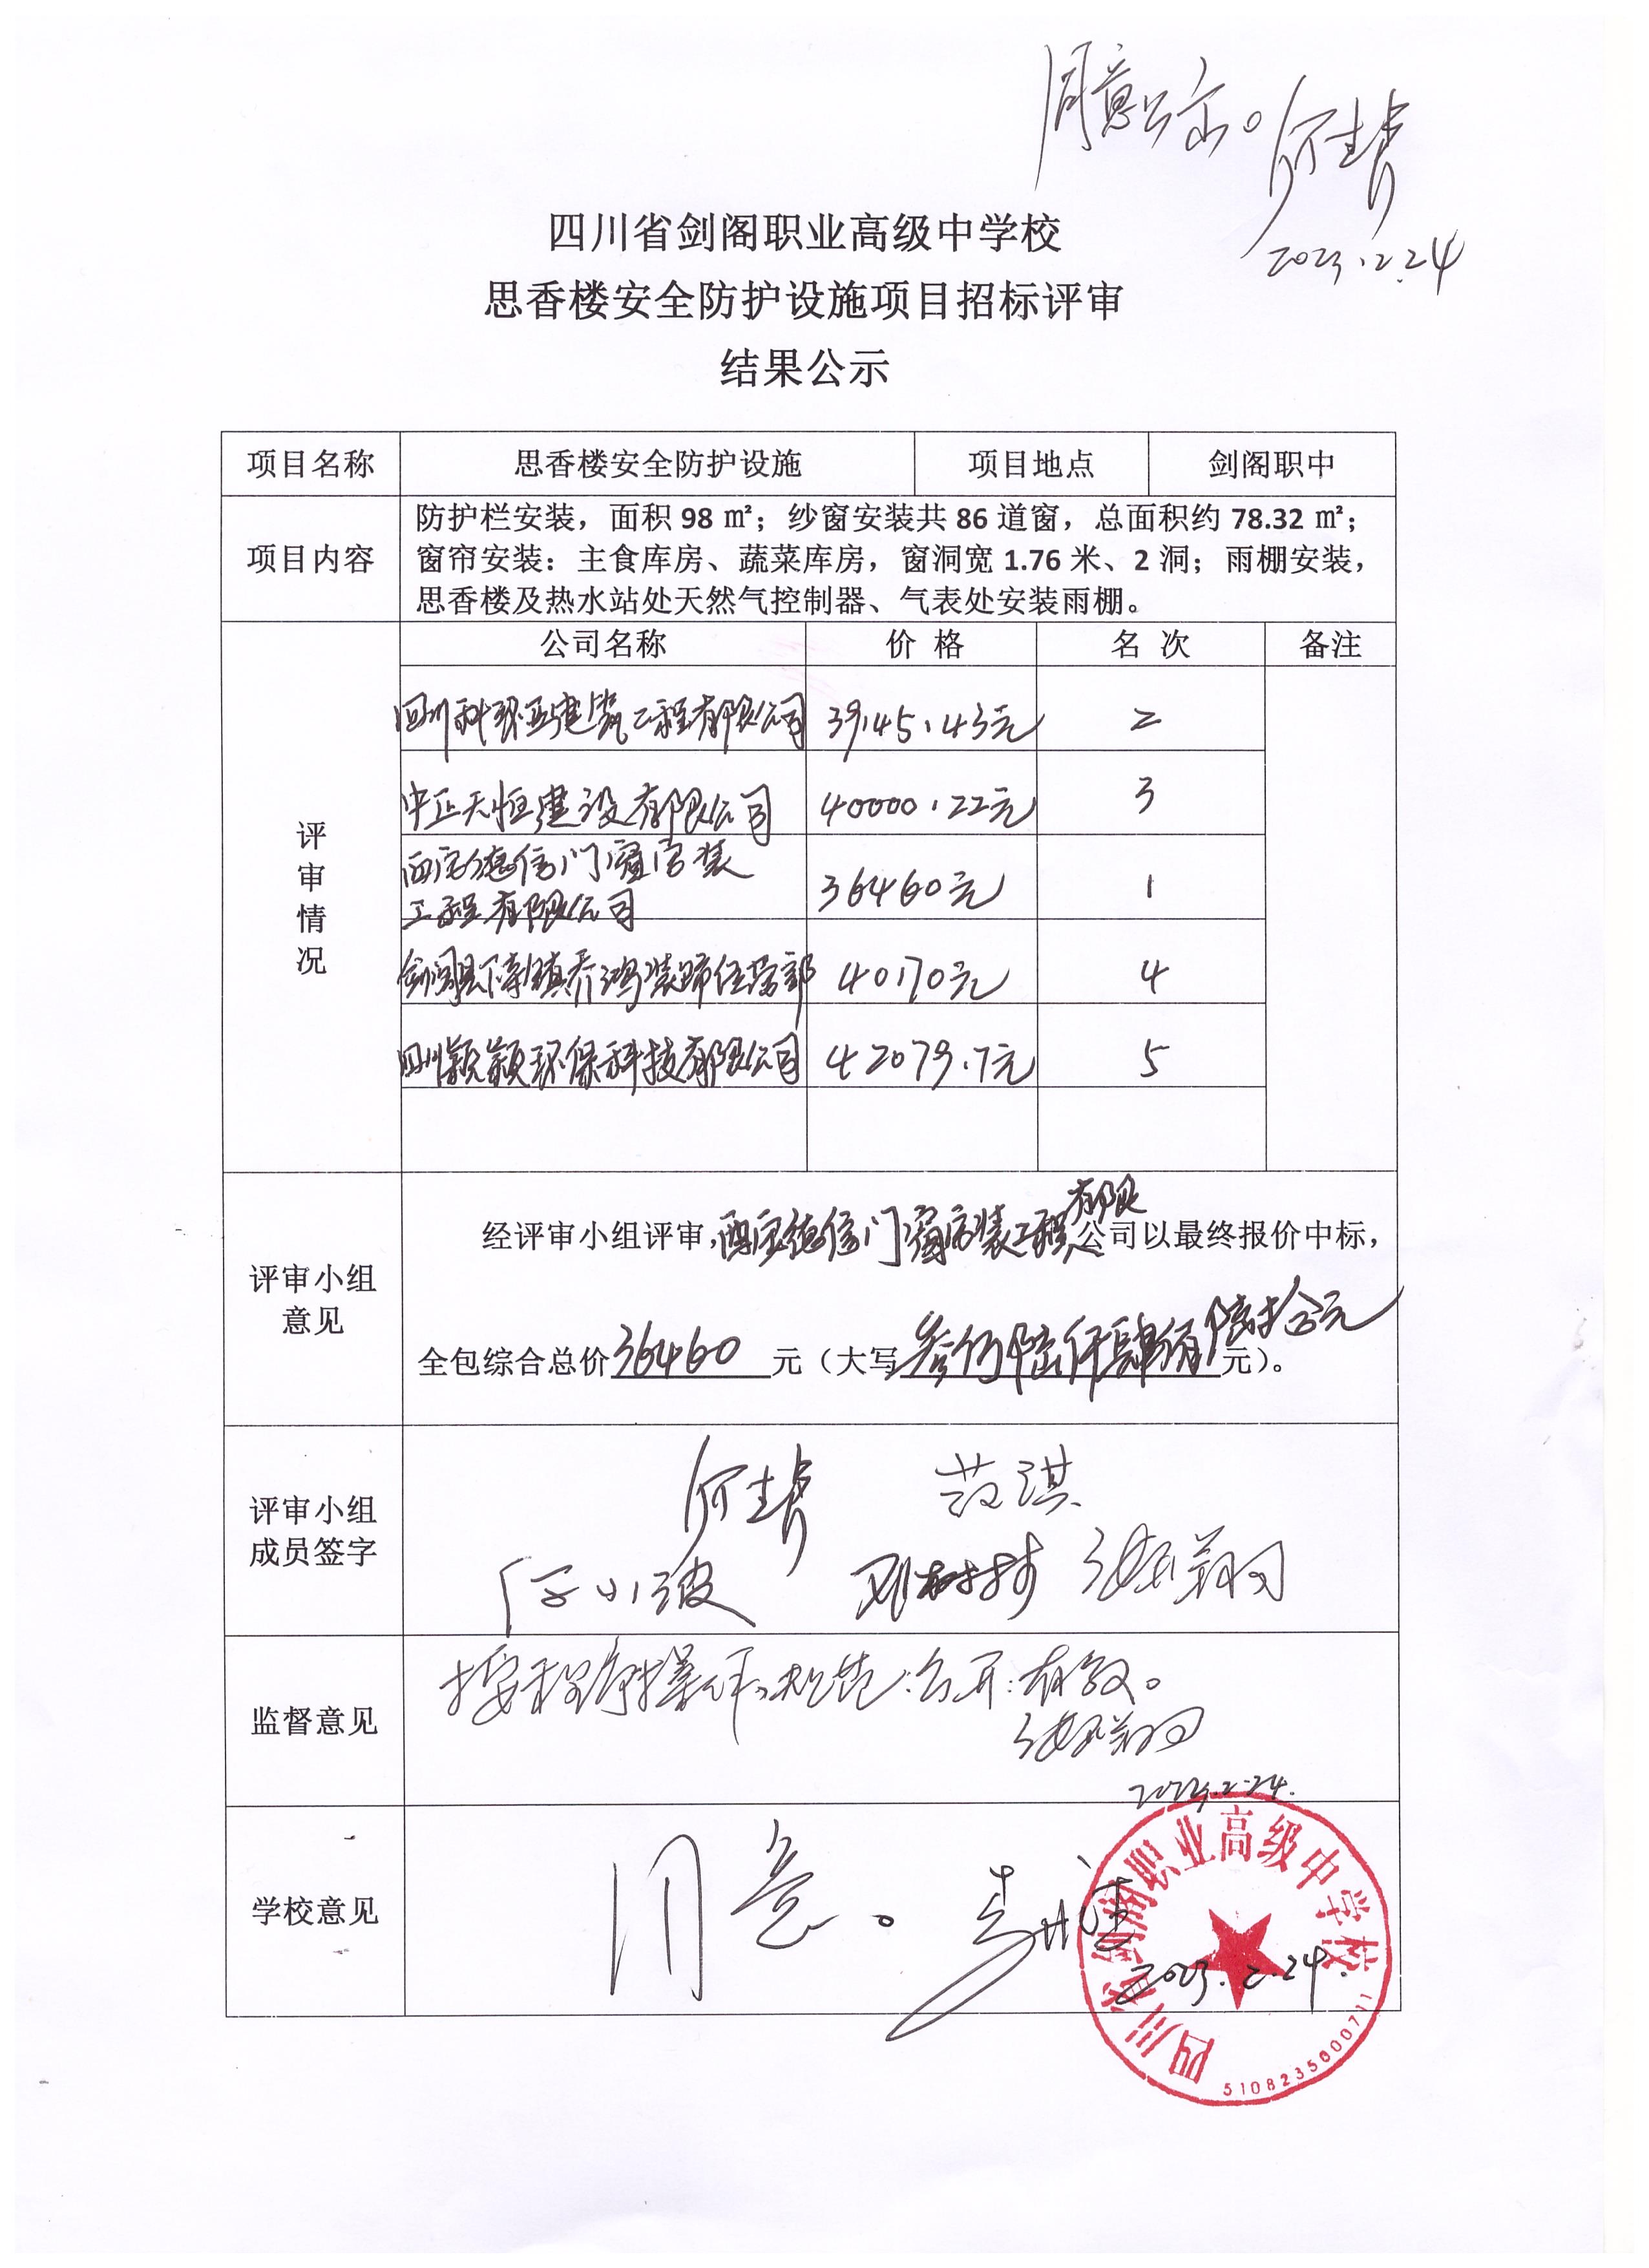 同意公示。
2023.2.24
四川省剑阁职业高级中学校
思香楼安全防护设施项目招标评审
结果公示
项目名称 思香楼安全防护设施 项目地点 剑阁职中
项目内容
防护栏安装，面积 98 ㎡；纱窗安装共 86 道窗，总面积约 78.32 ㎡；
窗帘安装：主食库房、蔬菜库房，窗洞宽 1.76 米、2 洞；雨棚安装，
思香楼及热水站处天然气控制器、气表处安装雨棚。
评审情况
公司名称 价 格 名 次 备注
四川科环亚建筑工程有限公司 39145.43元 2
中正天恒建设有限公司 40000.22元 3
德信门窗
工程有限公司 36460元 1
剑阁县下寺镇乔鸿装饰经营部 40170元 4
四川颖颖环保科技有限公司 42079.7元 5
评审小组
意见
经评审小组评审，德信门窗工程有限公司以最终报价中标，
全包综合总价36460元（大写叁万陆仟肆佰陆拾元元）。
评审小组
成员签字
范淇
监督意见
按程序操作，规范：公开：有效。
2023.2.24.
学校意见
同意。
2023.2.24.
四川省剑阁职业高级中学校
5108235000711